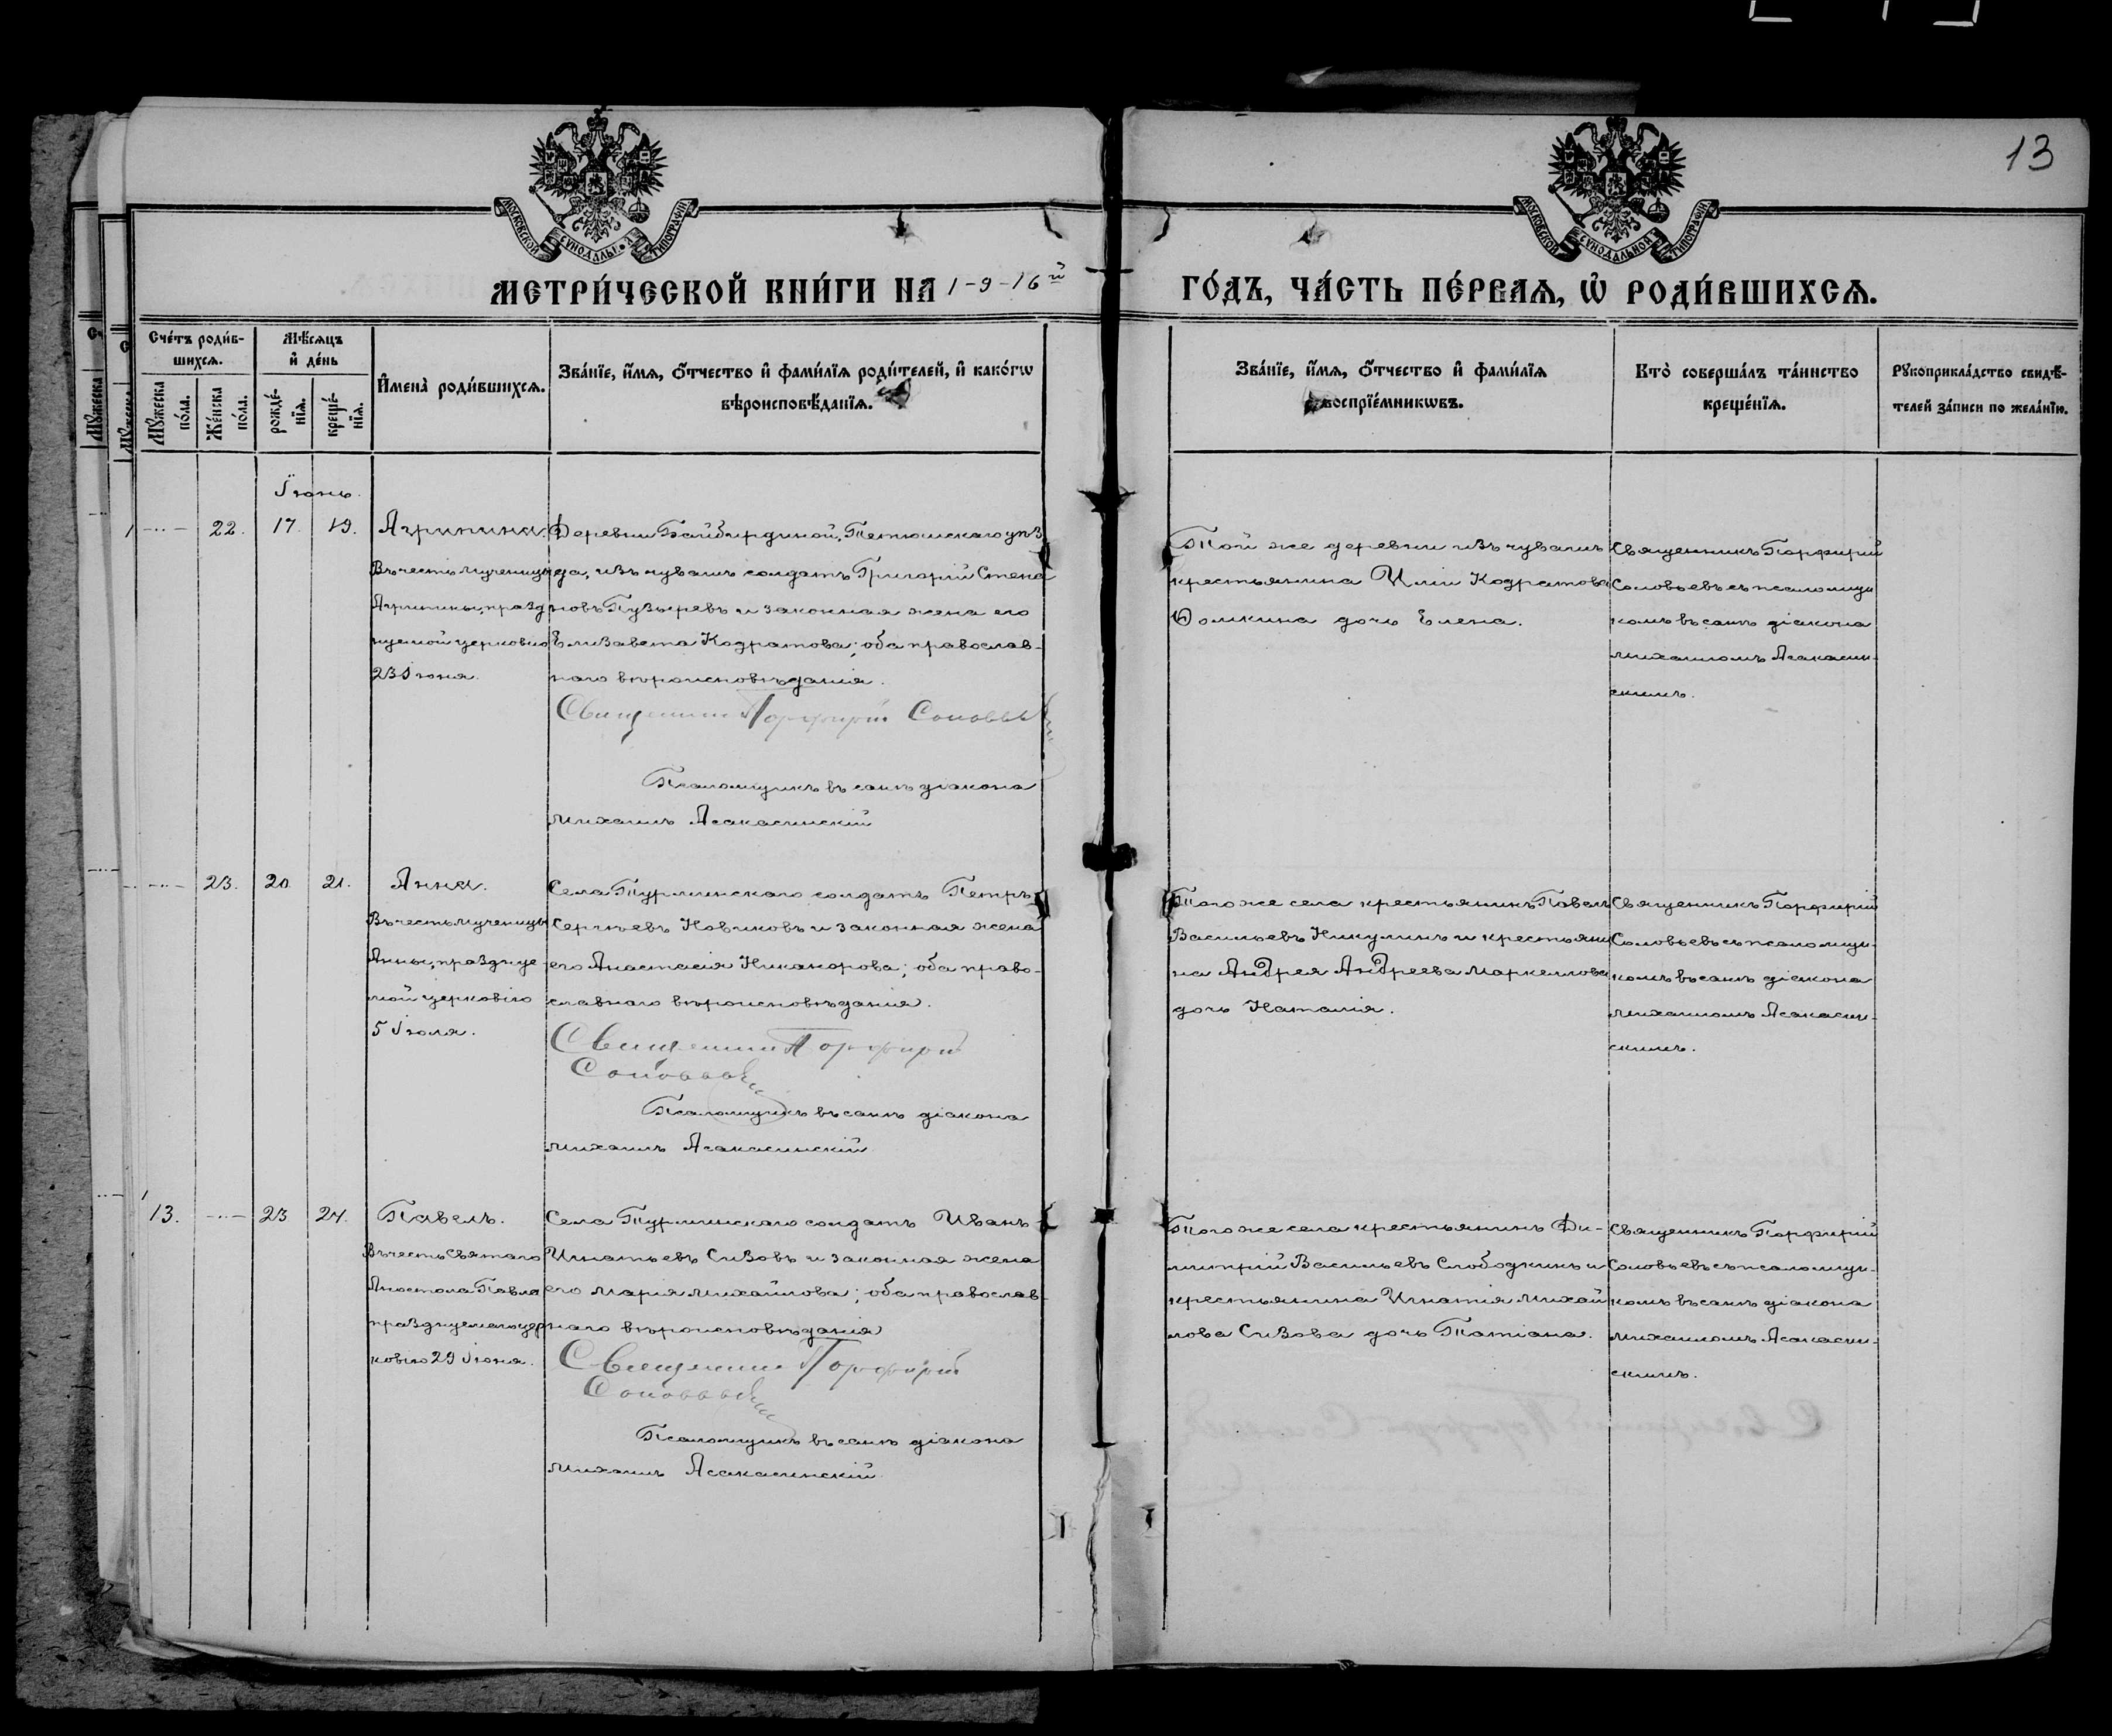 13
МОСКОВСКОЙ СѴНОДАЛЬНОЙ ТИПОГРАФІИ
МОСКОВСКОЙ СѴНОДАЛЬНОЙ ТИПОГРАФІИ
МЕТРИ́ЧЕСКОЙ КНИ́ГИ НА 1-9-16й
ГО́ДЪ, ЧА́СТЬ ПЕ́РВАѦ, Ѡ҆ РОДИ́ВШИХСѦ.
Сче́тъ роди́в-
шихсѧ.
Мꙋжеска по́ла.
Же́нска по́ла.
Мѣ́сѧцъ
и҆ де́нь
рожде́-
нїѧ.
креще́-
нїѧ.
И҆мена̀ роди́вшихсѧ.
Зва́нїе, и҆́мѧ, ѻ҆́тчество и҆ фами́лїѧ роди́телей, и҆ како́гѡ
вѣроисповѣ́данїѧ.
Зва́нїе, и҆́мѧ, ѻ҆́тчество и҆ фами́лїѧ
воспрїе́мникѡвъ.
Кто̀ соверша́лъ та́инство
креще́нїѧ.
Рꙋкоприкла́дство свидѣ́-
телей за́писи по жела́нїю.
Іюнь.
22. 17. 19.
Агрипина.
Въ честь мученицы
Агрипины, празд
нуемой церковію
23 Іюня.
Деревни Байбирдиной, Тетюшскаго уѣз
да, изъ чувашъ солдатъ Григорій Степа
новъ Пузыревъ и законная жена его
Елизавета Кодратова; оба православ-
наго вѣроисповѣданія.
Священникъ Порфирій Соловьевъ
Псаломщикъ въ санѣ діакона
Михаилъ Асакасинскій
Той же деревни изъ чувашъ
крестьянина Иліи Кодратова
Ѳомкина дочь Елена.
Священникъ Порфирій
Соловьевъ съ псаломщи
комъ въ санѣ діакона
Михаиломъ Асакасин-
скимъ.
23. 20. 21.
Анна.
Въ честь мученицы
Анны, празднуе
мой церковію
5 Іюля.
Села Турминскаго солдатъ Петръ
Сергѣевъ Новиковъ и законная жена
его Анастасія Никанорова; оба право-
славнаго вѣроисповѣданія.
Священникъ Порфирій
Соловьевъ
Псаломщикъ въ санѣ діакона
Михаилъ Асакасинскій
Того же села крестьянинъ Павелъ
Васильевъ Никулинъ и крестьяни
на Андрея Андреева Маркеллова
дочь Наталія.
Священникъ Порфирій
Соловьевъ съ псаломщи-
комъ въ санѣ діакона
Михаиломъ Асакасин-
скимъ.
13. 23 24.
Павелъ.
Въ честь Святаго
Апостола Павла
празднуемаго цер
ковію 29 Іюня.
Села Турминскаго солдатъ Иванъ
Игнатьевъ Сизовъ и законная жена
его Марія Михайлова; оба православ-
наго вѣроисповѣданія
Священникъ Порфирій
Соловьевъ
Псаломщикъ въ санѣ діакона
Михаилъ Асакасинскій
Того же села крестьянинъ Ди-
митрій Васильевъ Слободкинъ и
крестьянина Игнатія Михай
лова Сизова дочь Татіана.
Священникъ Порфирій
Соловьевъ съ псаломщи-
комъ въ санѣ діакона
Михаиломъ Асакасин-
скимъ.